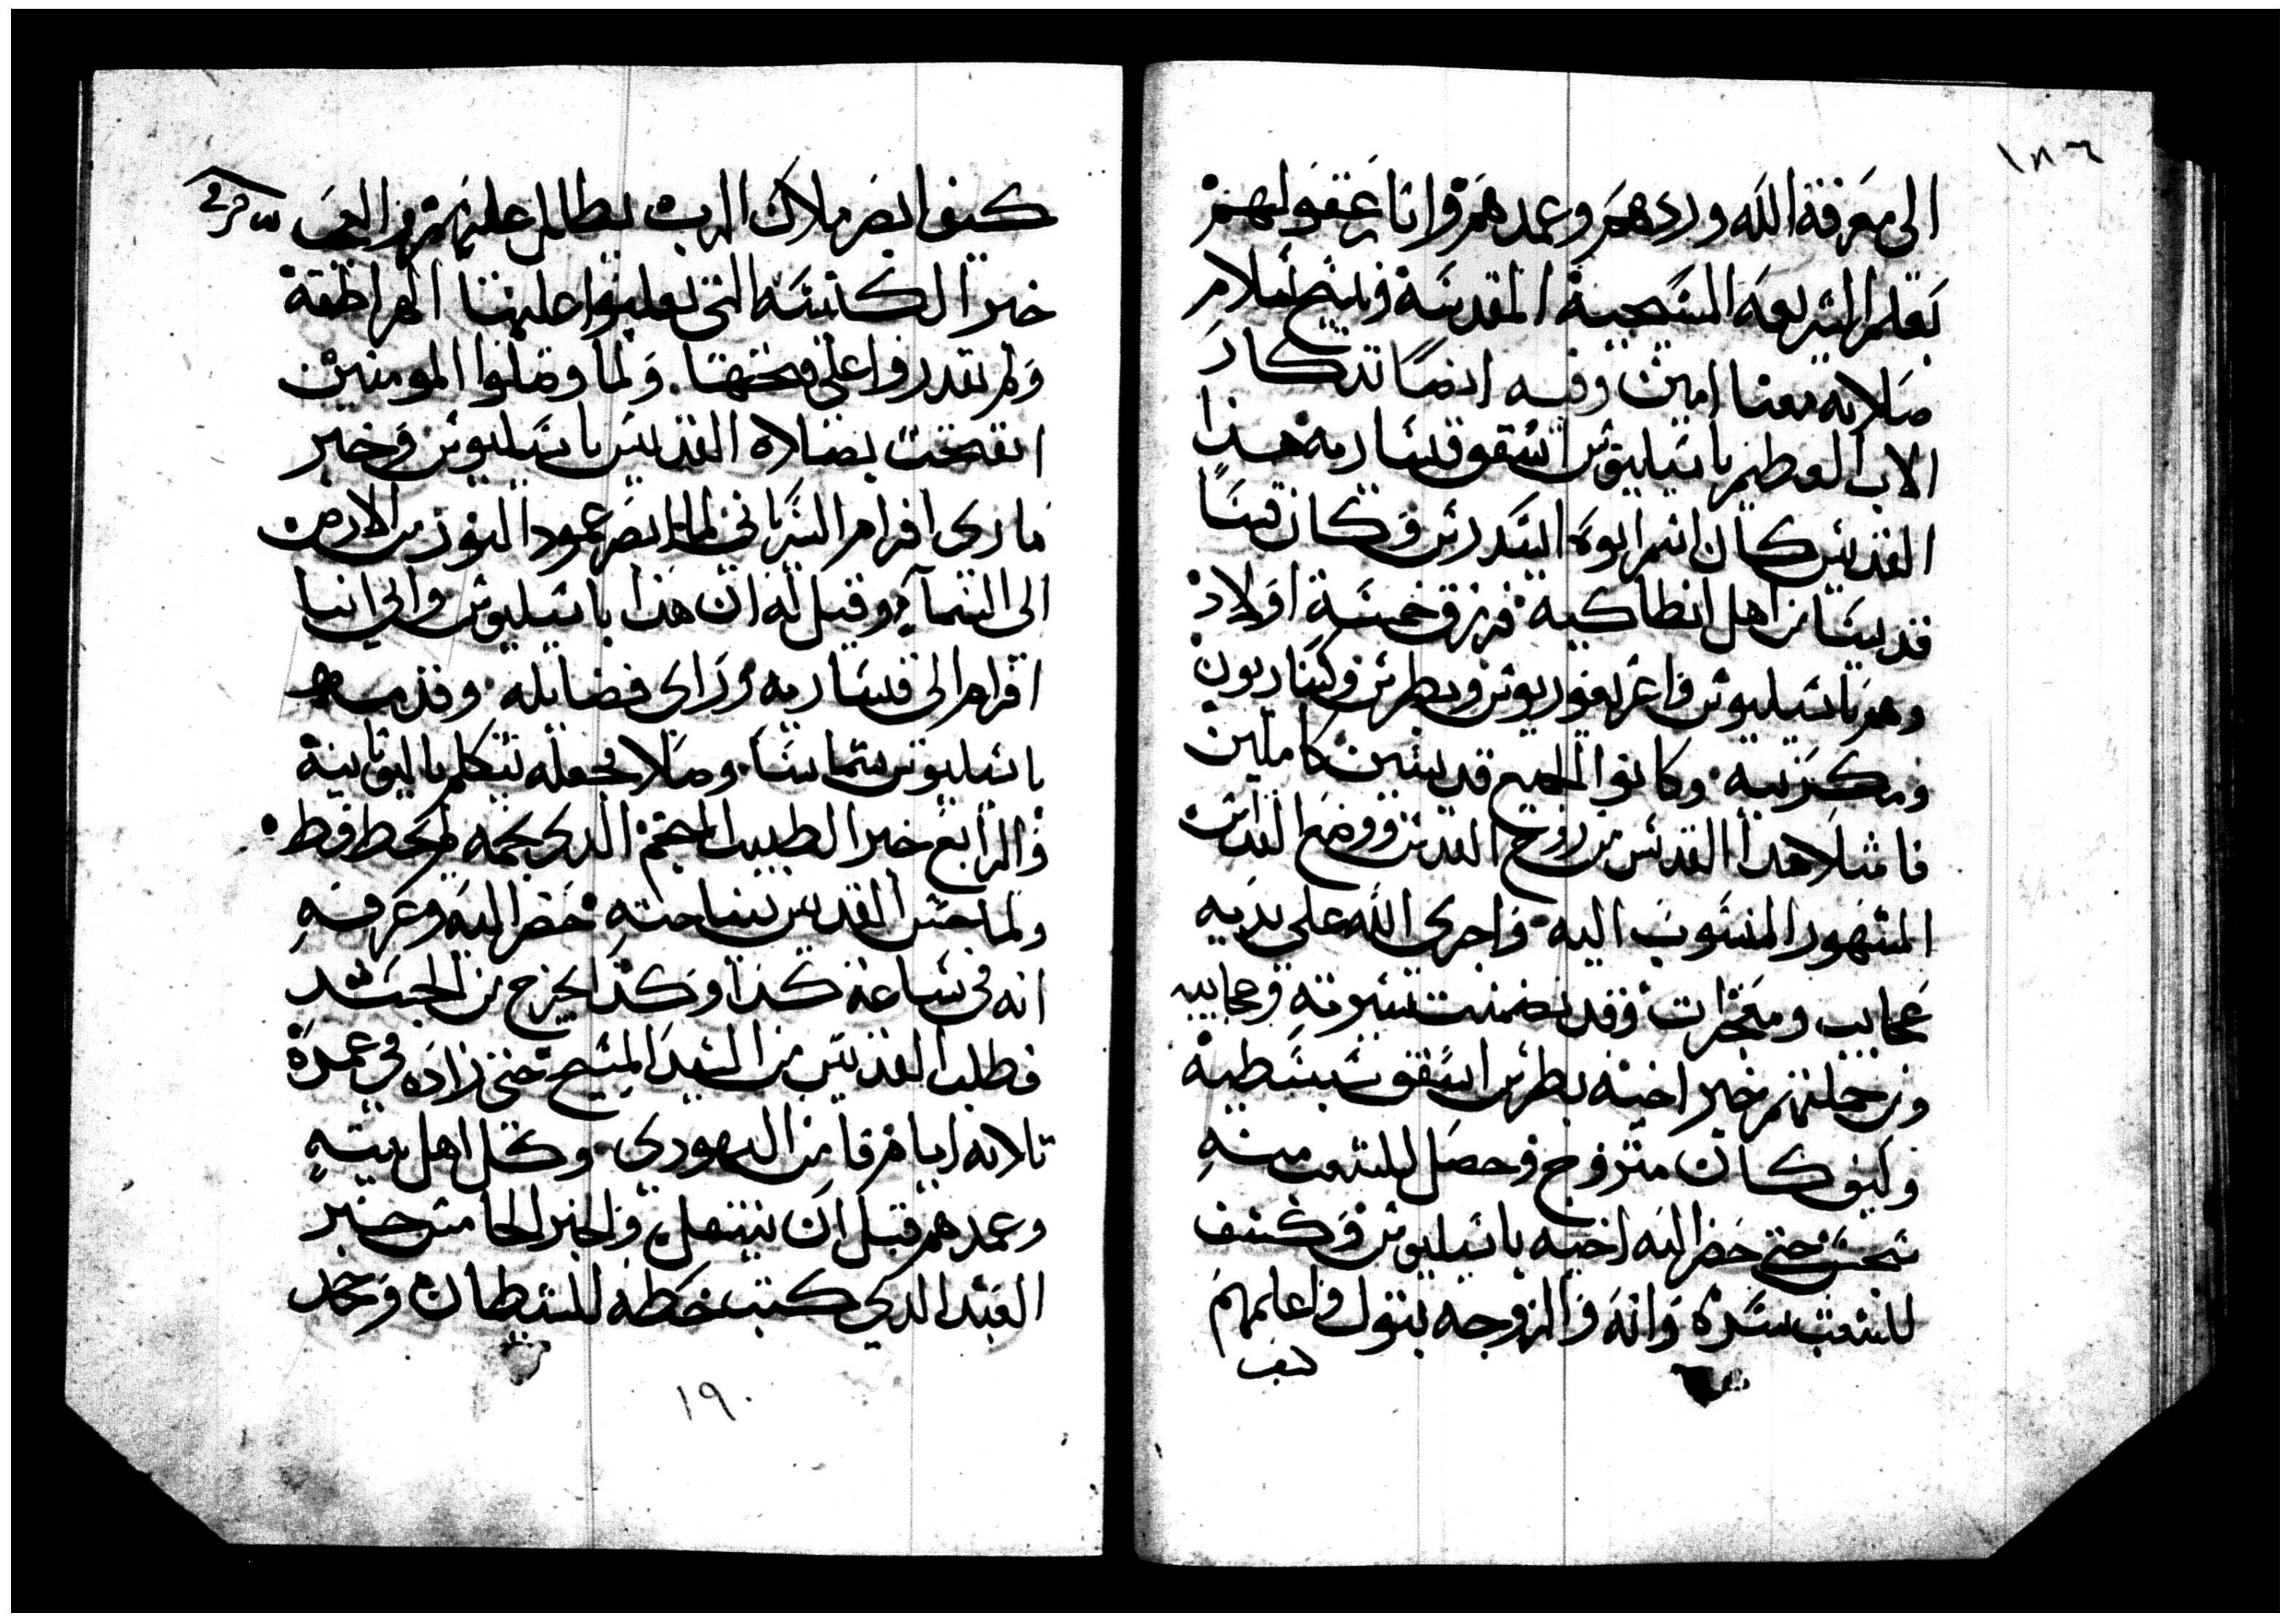 ١٨٦
الى معرفة الله وردهم وعمدهم وانار عقولهم
بعلم الشريعه المسيحية المقدسة وتنيح بسلام
صلاته معنا امين وفيه ايضا تدكار
الاب العظيم باسيليوس اسقف قيسارية هذا
القديس كان اسم ابوه ... وكان قسا
قديسا من اهل انطاكية فرزق خمسة اولاد
وهم باسيليوس واغريغوريوس وبطرس وكساريون
ومكرنيه وكانوا الجميع قديسين كاملين
فامتلا هدا القديس من روح القدس ووضع القداس
المشهور المنسوب اليه واجرى الله على يديه
عجايب ومعجزات وقد تضمنت سيرته وعجايبه
ومن جملتهم خبر اخيه بطرس اسقف سبسطية
وكيف كان متزوج وحصل للشعب منه
شك حتى حضر اليه اخيه باسيليوس وكشف
للشعب سره وانه والزوجه بتول واعلمهم
كيف
كيف ابصر ملاك الرب يظلل عليهم ومن العجب
خبر الكنيسه التى تغلبوا عليها الهراطقة
ولم يقدروا على فتحها ولما وصلوا المومنين
انفتحت بصلاه القديس باسيليوس وخبر
ماري افرام السرياني لما ابصر عمود النور من الارض
الى السماء وقيل له ان هذا باسيليوس واتى انبا
افرام الى قيسارية وراى فضايله وقدمه
باسيليوس شماسا وصلا فجعله يتكلم باليونانية
والرابع خبر الطبيب المنجم الدي نجمه لم يخط قط
ولما حس القديس بنياحته حضر اليه وعرفه
انه في ساعة كذا وكذا يخرج من الجسد
فطلب القديس من السيد المسيح حتى زاده في عمره
تلاته ايام فامن اليهودي وكل اهل بيته
وعمدهم قبل ان ينتقل والخبر الخامس خبر
العبد الدي كتب خطه للشيطان وجحد
١٩٠